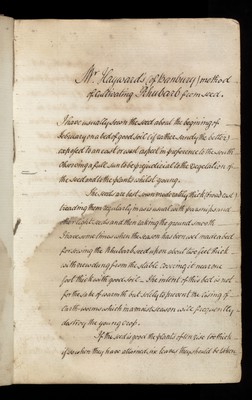 Mr. Haywards (of Banbury) method
of Cultivating Rhubarb from seed.
I have usually sown the seed about the begining of
February on a bed of good soil (if rather sandy the better)
exposed to an east or west aspect in preference to the south
observing a full sun to be prejudicial to the vegetation of
the seed and to the plants whilst young.
The seeds are best sown moderately thick (broad cast)
treading them regularly in as is usual with parsnips and
other seeds and then raking the ground smooth
I have sometimes when the season has been wet made a bed
for sowing the Rhubarb seed upon about two feet thick
with new dung from the stable covering it near one
foot thick with good soil. The intent of this bed is not
for the sake of warmth but solely to prevent the rising of
earth worms which in a moist season will frequently
destroy the young crop.
If the seed is good the plants often rise too thick
if so when they have attained six leaves they should be taken